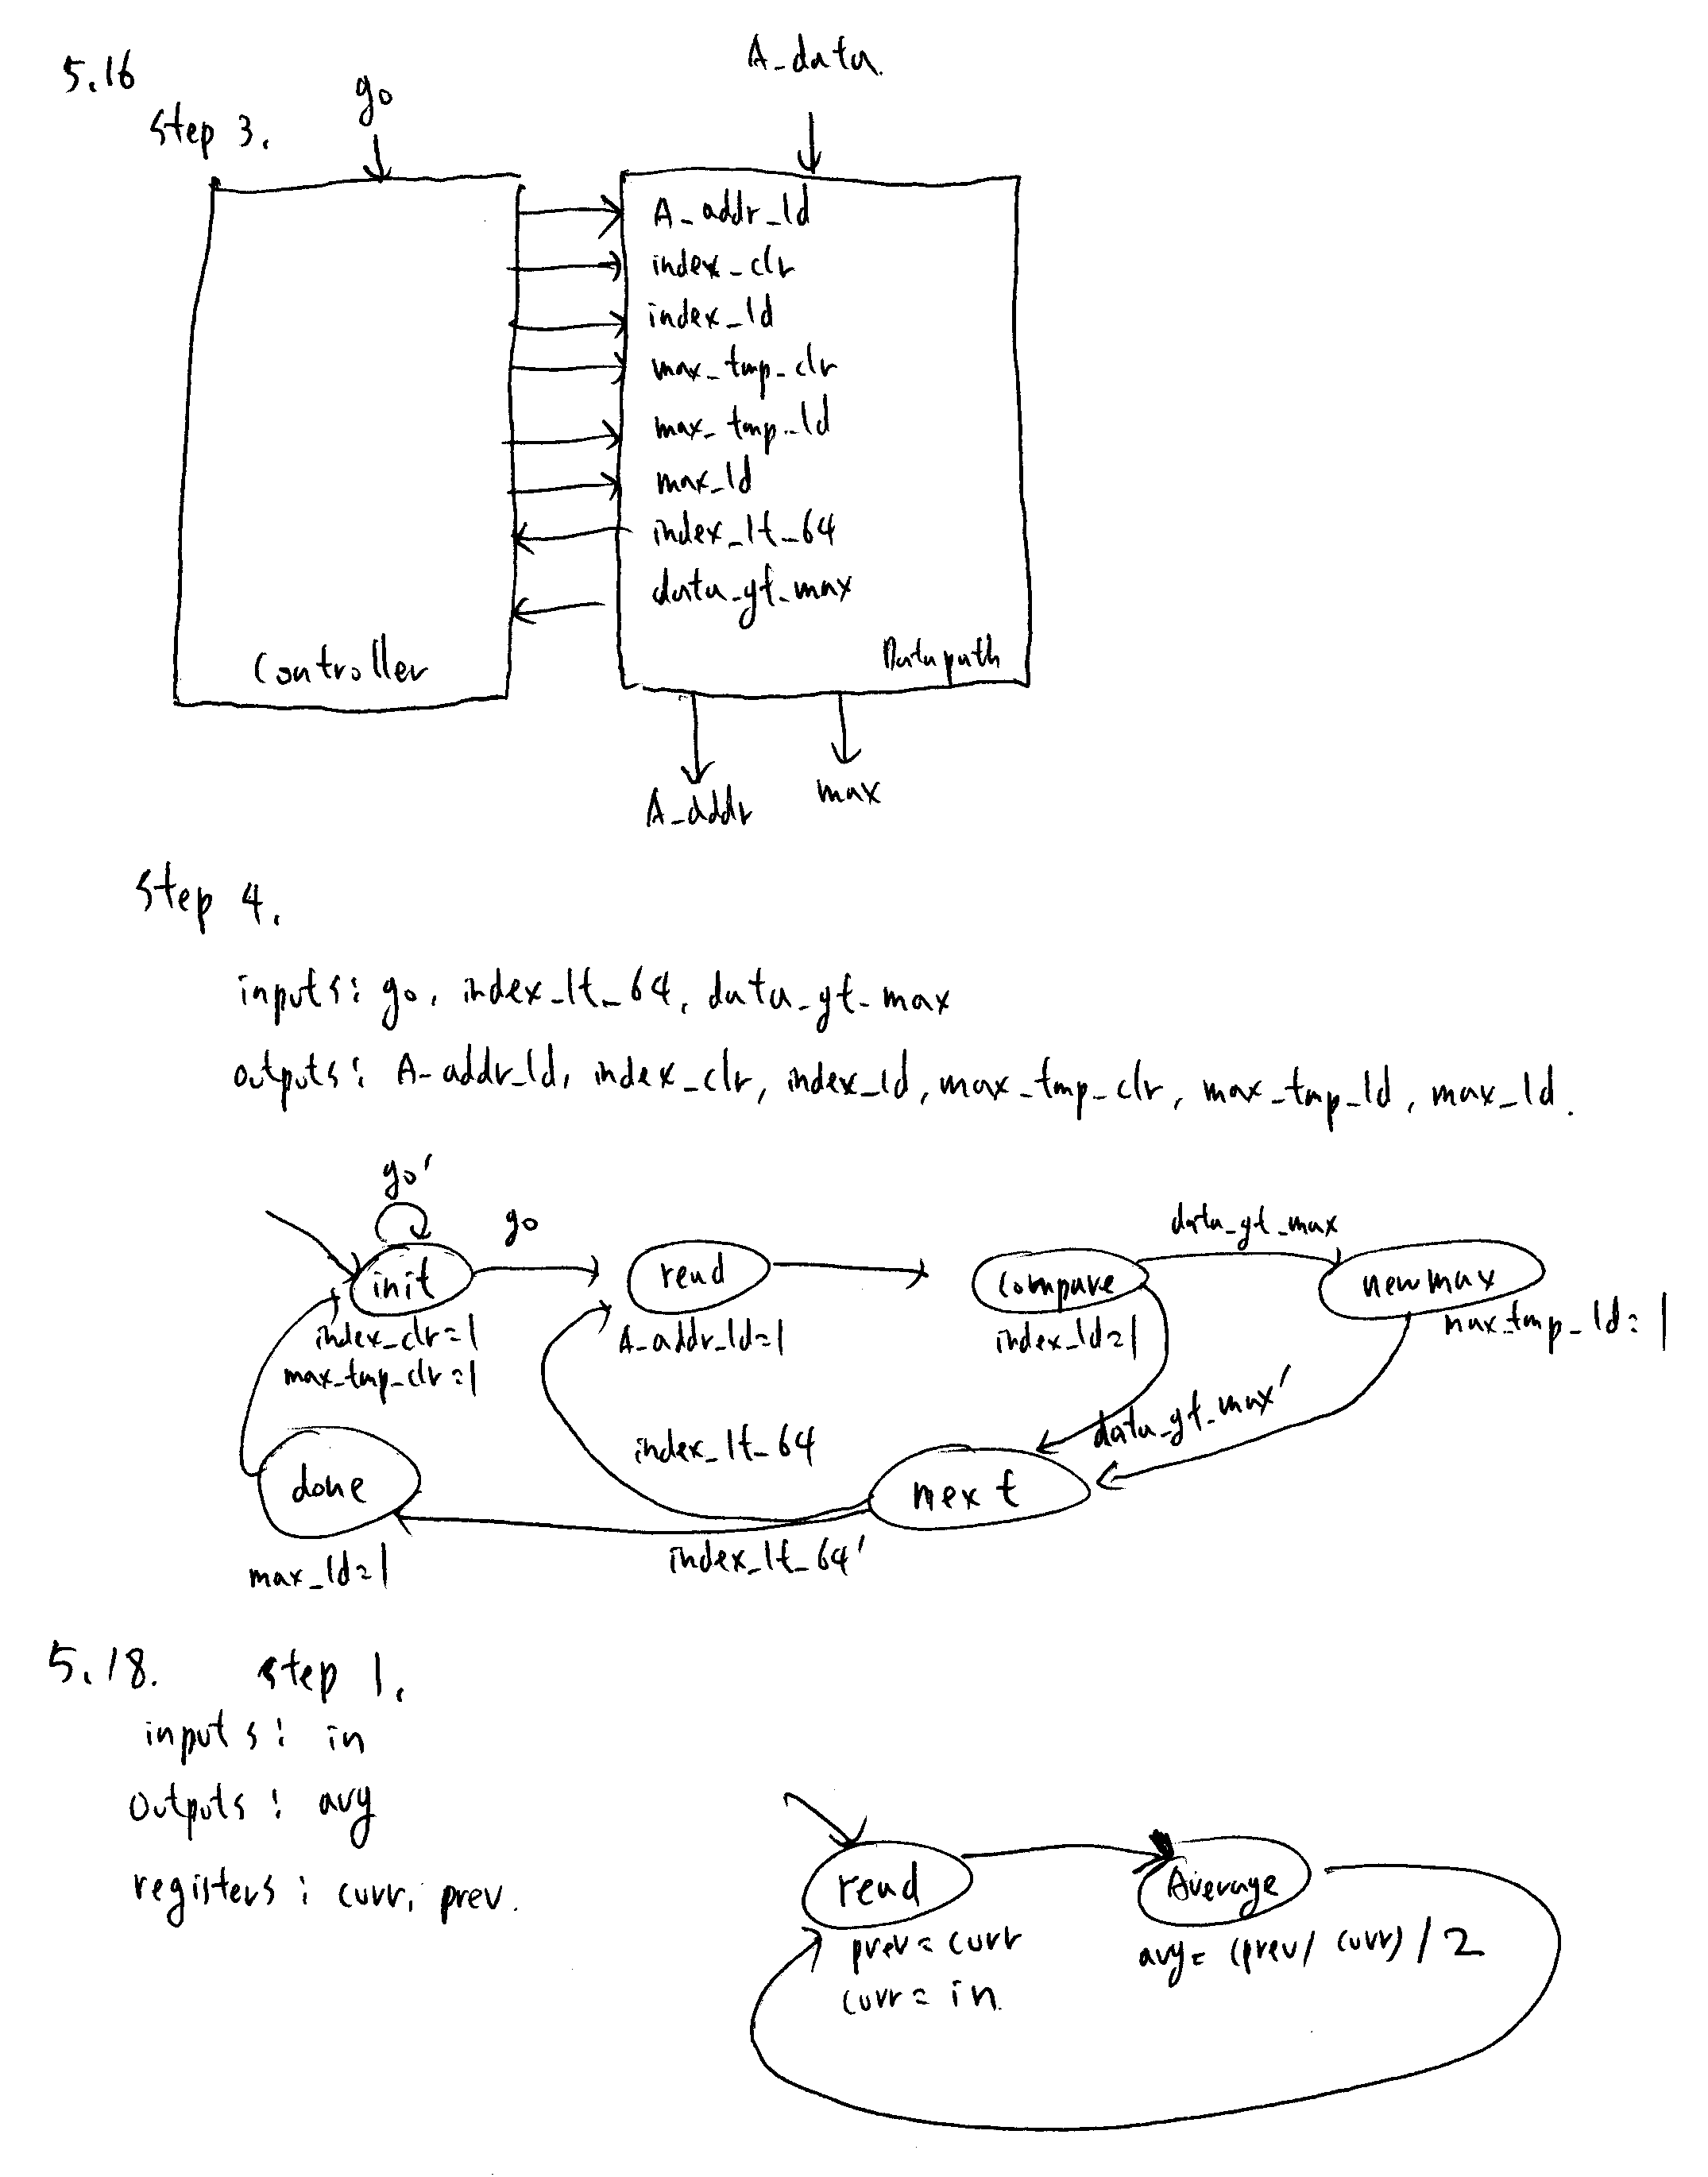 5.16
step 3.
go
A_data.
A_addr_ld
index_clr
index_ld
max_tmp_clr
max_tmp_ld
max_ld
index_lt_64
data_gt_max
Controller
Datapath
A_addr
max
step 4.
inputs: go, index_lt_64, data_gt_max
outputs: A_addr_ld, index_clr, index_ld, max_tmp_clr, max_tmp_ld, max_ld.
go'
go
data_gt_max
init
read
compare
newmax
index_clr=1
max_tmp_clr=1
A_addr_ld=1
index_ld=1
max_tmp_ld=1
data_gt_max'
index_lt_64
done
next
index_lt_64'
max_ld=1
5.18. step 1.
inputs: in
outputs: avg
registers: curr, prev.
read
Average
prev = curr
curr = in.
avg = (prev/ curr) / 2